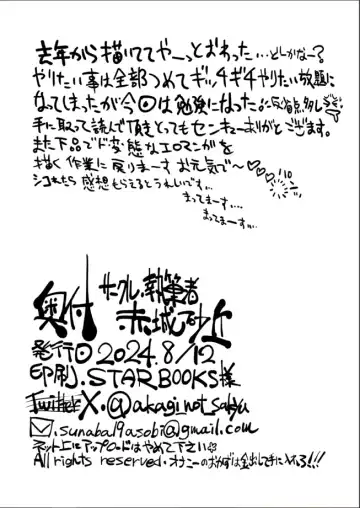 去年から描いててやーっとおわった…としかな〜?
やりたい事は全部つめてギッチギチやりたい放題に
なってしまったが今回は勉強になった。
手に取って読んで頂きとってもセンキューありがとうございます。
また下品でド変態なエロマンガを
描く作業に戻りまーす お元気で〜♡♡♡
シコれたら感想もらえるとうれしいです…
まってまーす…
まってまーす…
奥付 サークル・執筆者
赤城砂丘
発行日 2024.8/12
印刷.STARBOOKS様
Twitter X.@akaginot_sakyu
.sunaba19asobi@gmail.com
ネット上にアップロードはやめて下さい
All rights reserved.オナニーのおかずは金出して手に入れろ!!!